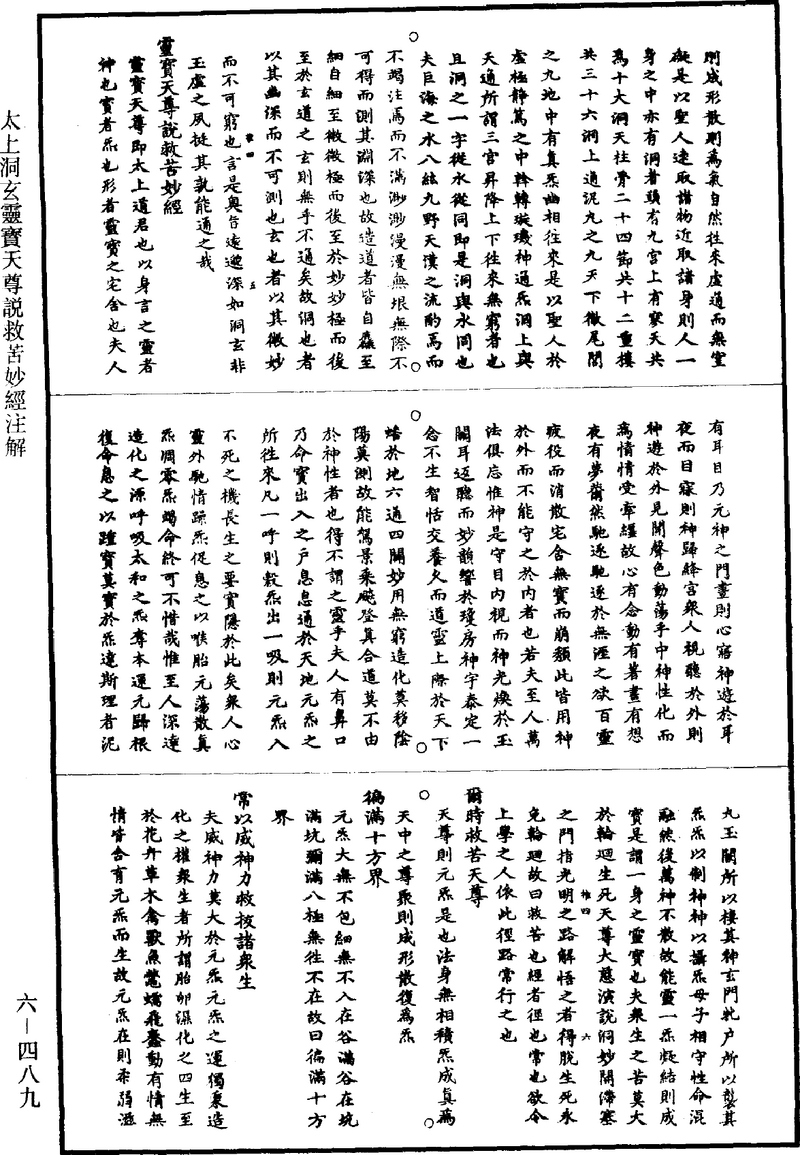 太上洞玄靈寶天尊說救苦妙經注解
六－四八九
則成形散則為氣自然往來虛通而無窒
礙是以聖人遠取諸物近取諸身則人一
身之中亦有洞者頭有九宮上有寥天共
為十大洞天柱骨二十四節共十二重樓
共三十六洞上通泥九之九天下徹尾閭
之九地中有真炁幽相往來是以聖人於
虛極靜篤之中斡轉璇璣神通炁洞上與
天通所謂三宮昇降上下往來無窮者也
且洞之一字從水從同即是洞與水同也
夫巨海之水八紘九野天漢之流酌焉而
不竭注焉而不滿渺渺漫漫無垠無際不
可得而測其淵深也故造道者皆自麤至
細自細至微微極而後至於妙妙極而後
至於玄道之玄則無乎不通矣故洞也者
以其幽深而不可測也玄也者以其微妙
而不可窮也言是奧旨遠邈深如洞玄非
玉虛之夙挺其孰能通之哉
靈寶天尊說救苦妙經
靈寶天尊即太上道君也以身言之靈者
神也寶者炁也形者靈寶之宅舍也夫人
有耳目乃元神之門晝則心寤神遊於耳
夜而目寐則神歸絳宮眾人視聽於外則
神遊於外見聞聲色動蕩乎中神性化而
為情情受牽纏故心有念動有著晝有想
夜有夢薾然馳逐馳逐於無涯之欲百靈
疲役而消散宅舍無寶而崩頹此皆用神
於外而不能守之於內者也若夫至人萬
法俱忘惟神是守目內視而神光煥於玉
關耳返聽而妙韻響於瓊房神宇泰定一
念不生智恬交養久而道靈上際於天下
蟠於地六通四闢妙用無窮造化莫移陰
陽莫測故能駕景乘飈登真合道莫不由
於神性者也得不謂之靈乎夫人有鼻口
乃命寶出入之戶息息通於天地元炁之
所往來凡一呼則穀炁出一吸則元炁入
不死之機長生之要實隱於此矣眾人心
靈外馳情踈炁促息之以喉胎元蕩散真
炁凋零炁竭命終可不惜哉惟至人深達
造化之源呼吸太和之炁奪本還元歸根
復命息之以踵寶莫寶於炁達斯理者泥
丸玉關所以棲其神玄門牝戶所以襲其
炁炁以制神神以攝炁母子相守性命混
融然後萬神不散故能靈一炁凝結則成
寶是謂一身之靈寶也夫眾生之苦莫大
於輪迴生死天尊大慈演說洞妙開滯塞
之門指光明之路解悟之者得脫生死永
免輪迴故曰救苦也經者徑也常也欲令
上學之人依此徑路常行之也
爾時救苦天尊
天尊則元炁是也法身無相積炁成真為
天中之尊聚則成形散復為炁
徧滿十方界
元炁大無不包細無不入在谷滿谷在坑
滿坑彌滿八極無往不在故曰徧滿十方
界
常以威神力救拔諸眾生
夫威神力莫大於元炁元炁之運獨秉造
化之權眾生者所謂胎卵濕化之四生至
於花卉草木禽獸魚鱉蠕飛蠢動有情無
情皆含有元炁而生故元炁在則柔弱滋